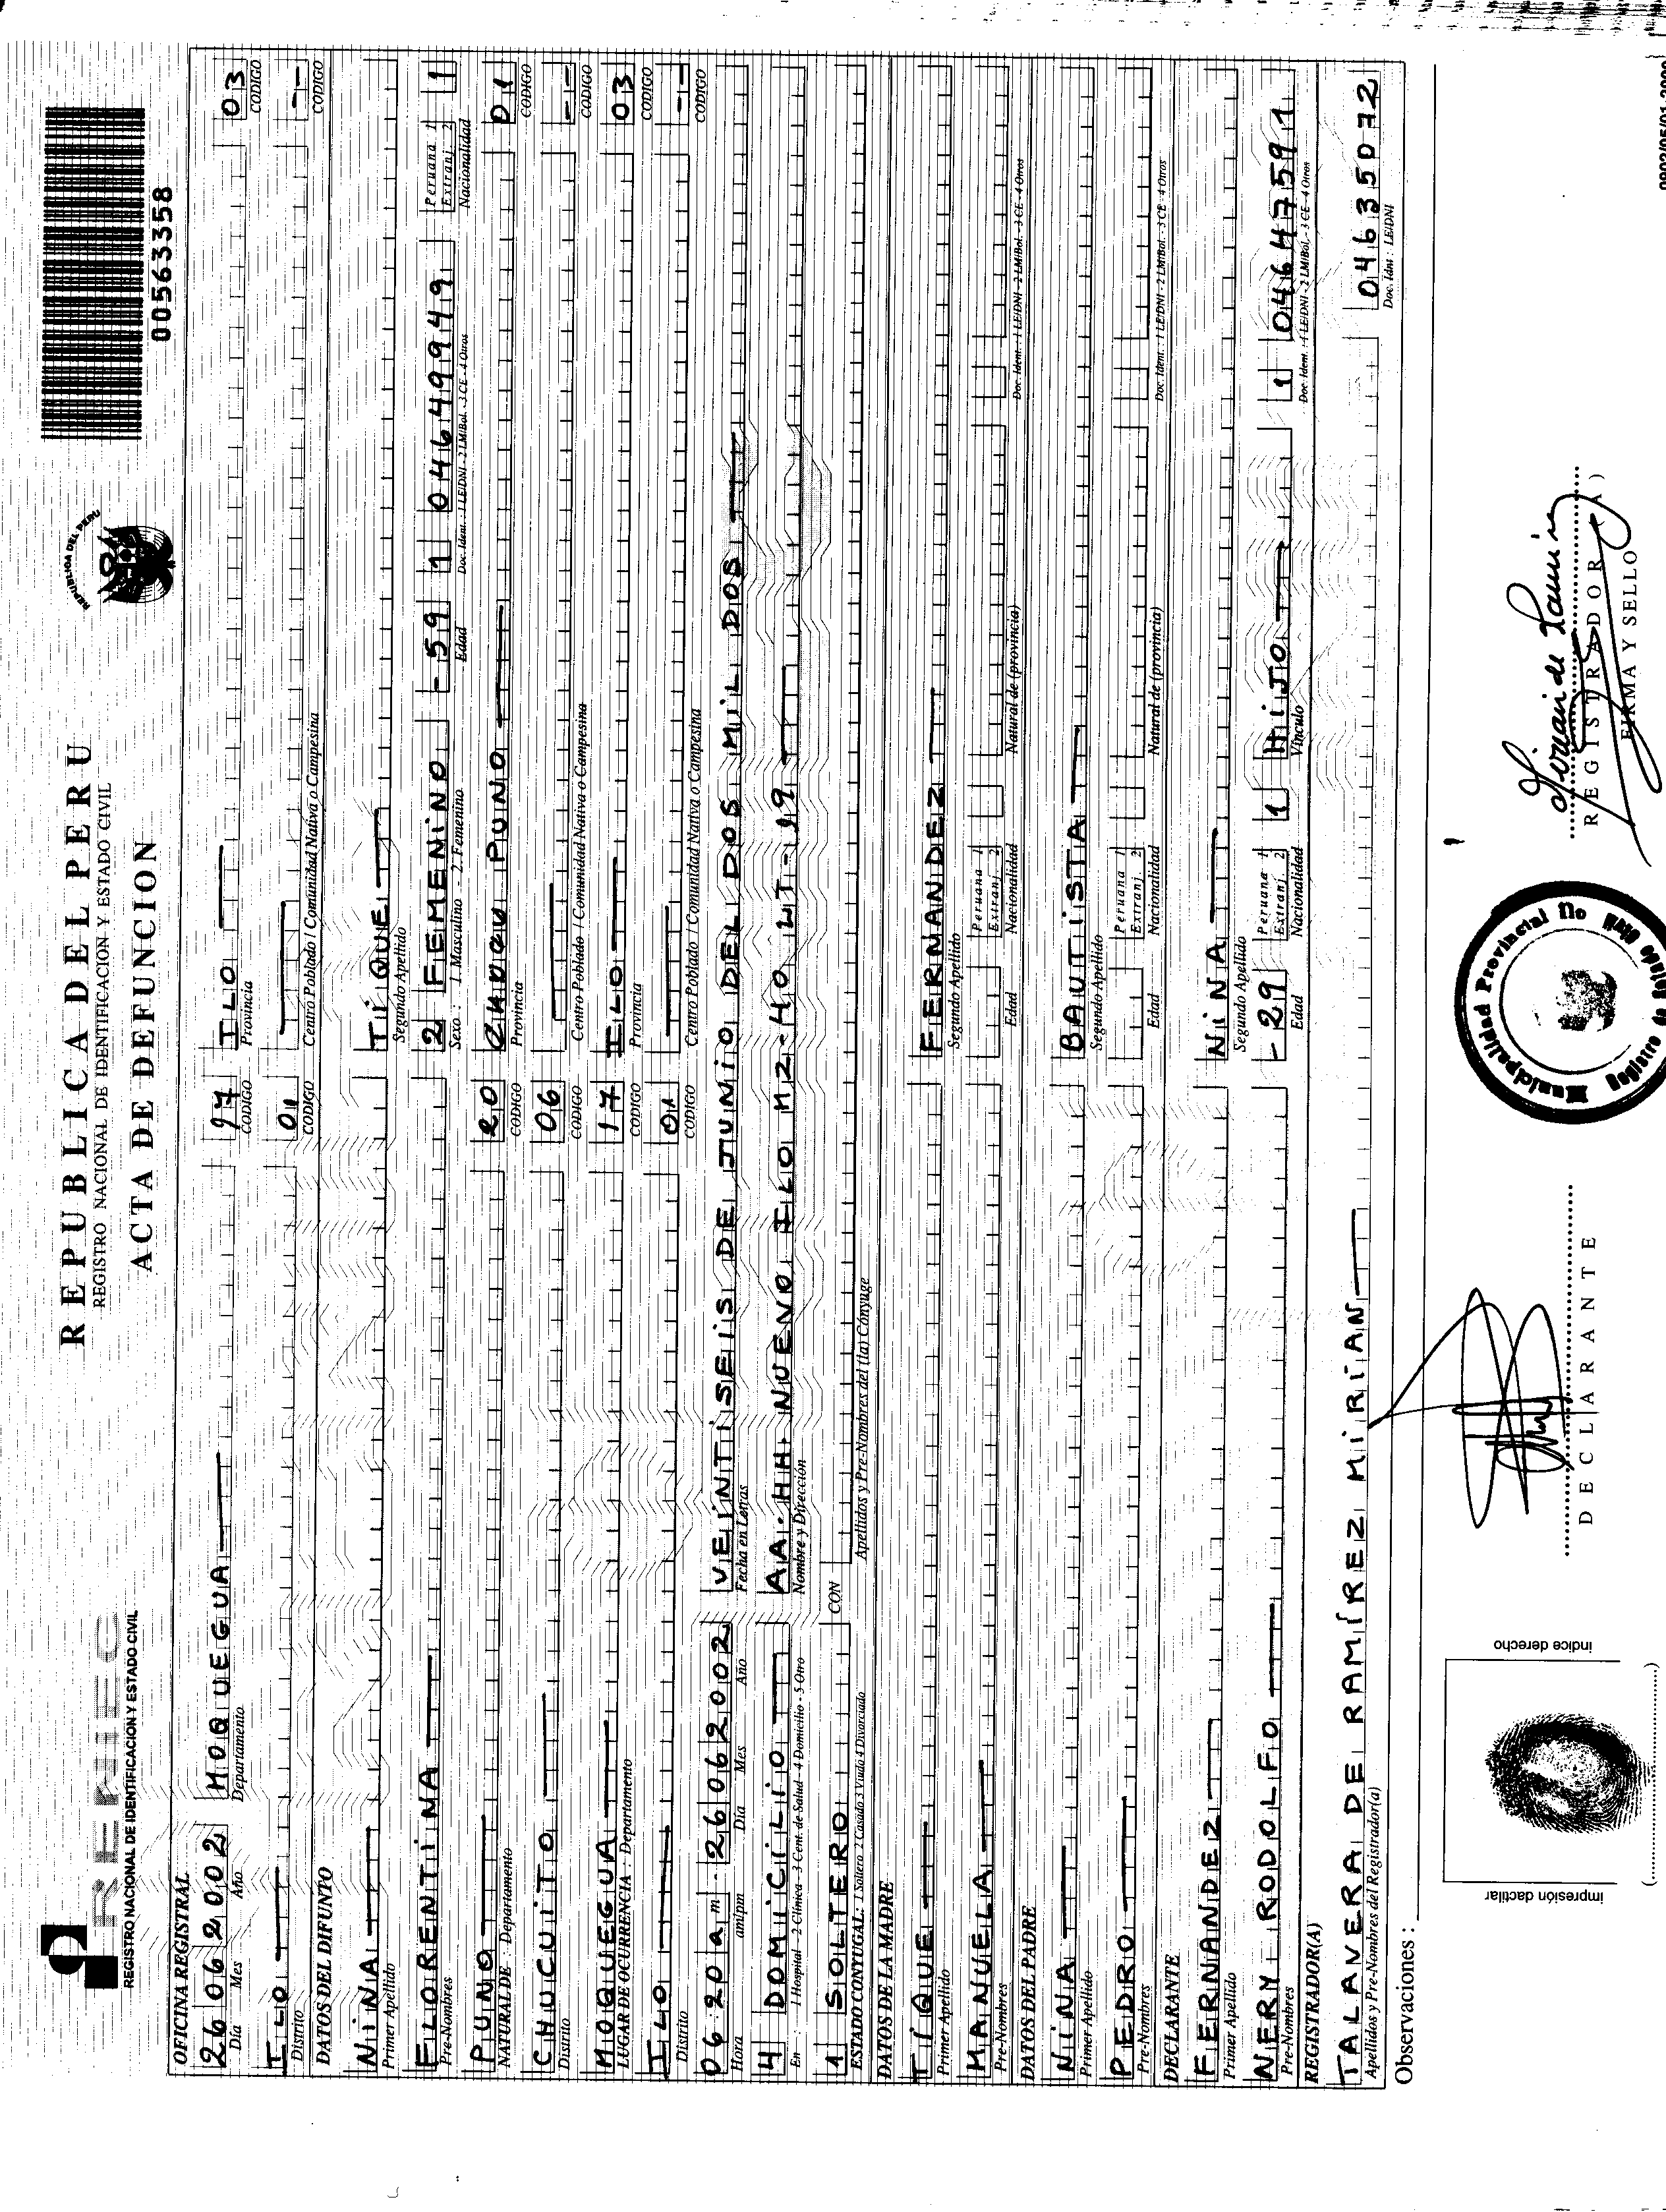 RENIEC
REGISTRO NACIONAL DE IDENTIFICACION Y ESTADO CIVIL
REPUBLICA DEL PERU
REGISTRO NACIONAL DE IDENTIFICACION Y ESTADO CIVIL
ACTA DE DEFUNCION
REPUBLICA DEL PERU
00563358
OFICINA REGISTRAL
26 06 2002 MOQUEGUA 17 ILO 03
Día Mes Año Departamento CODIGO Provincia CODIGO
ILO 01 --
Distrito CODIGO Centro Poblado / Comunidad Nativa o Campesina CODIGO
DATOS DEL DIFUNTO
NiNA TiQUE
Primer Apellido Segundo Apellido
FLORENTiNA 2 FEMENiNO -59 1 04649949 Peruana 1 Extranj. 2 1
Pre-Nombres Sexo : 1. Masculino - 2. Femenino Edad Doc. Ident. : 1 LE/DNI - 2 LM/Bol. - 3 CE - 4 Otros Nacionalidad
PUNO 20 CHUQUi PUNO 01
NATURAL DE : Departamento CODIGO Provincia CODIGO
CHUCUiTO 06 --
Distrito CODIGO Centro Poblado / Comunidad Nativa o Campesina CODIGO
MOQUEGUA 17 ILO 03
LUGAR DE OCURRENCIA : Departamento CODIGO Provincia CODIGO
ILO 01 --
Distrito CODIGO Centro Poblado / Comunidad Nativa o Campesina CODIGO
06:20am. 26062002 VEiNTiSEiS DE JUNiO DEL DOS MiL DOS
Hora am/pm Día Mes Año Fecha en Letras
4 DOMiCiLiO AA.HH NUEVO ILO MZ-40 LT-19
En : 1 Hospital - 2 Clínica - 3 Cent. de Salud - 4 Domicilio - 5 Otro Nombre y Dirección
1 SOLTERO CON
ESTADO CONYUGAL: 1 Soltero 2 Casado 3 Viudo 4 Divorciado Apellidos y Pre-Nombres del (la) Cónyuge
DATOS DE LA MADRE
TiQUE FERNANDEZ
Primer Apellido Segundo Apellido
MANUELA Peruana 1 Extranj. 2
Pre-Nombres Edad Nacionalidad Natural de (provincia) Doc. Ident. : 1 LE/DNI - 2 LM/Bol. - 3 CE - 4 Otros
DATOS DEL PADRE
NiNA BAUTiSTA
Primer Apellido Segundo Apellido
PEDRO Peruana 1 Extranj. 2
Pre-Nombres Edad Nacionalidad Natural de (provincia) Doc. Ident. : 1 LE/DNI - 2 LM/Bol. - 3 CE - 4 Otros
DECLARANTE
FERNANDEZ NiNA
Primer Apellido Segundo Apellido
NERY RODOLFO -29 Peruana 1 Extranj. 2 1 HiJO 1 04647591
Pre-Nombres Edad Nacionalidad Vínculo Doc. Ident. : 1 LE/DNI - 2 LM/Bol. - 3 CE - 4 Otros
REGISTRADOR(A)
TALAVERA DE RAMÍREZ MiRiAN 04635072
Apellidos y Pre-Nombres del Registrador(a) Doc. Idnt : LE/DNI
Observaciones :
impresión dactilar
indice derecho
DECLARANTE
Municipalidad Provincial Ilo
Registro de
REGISTRADOR(A)
FIRMA Y SELLO